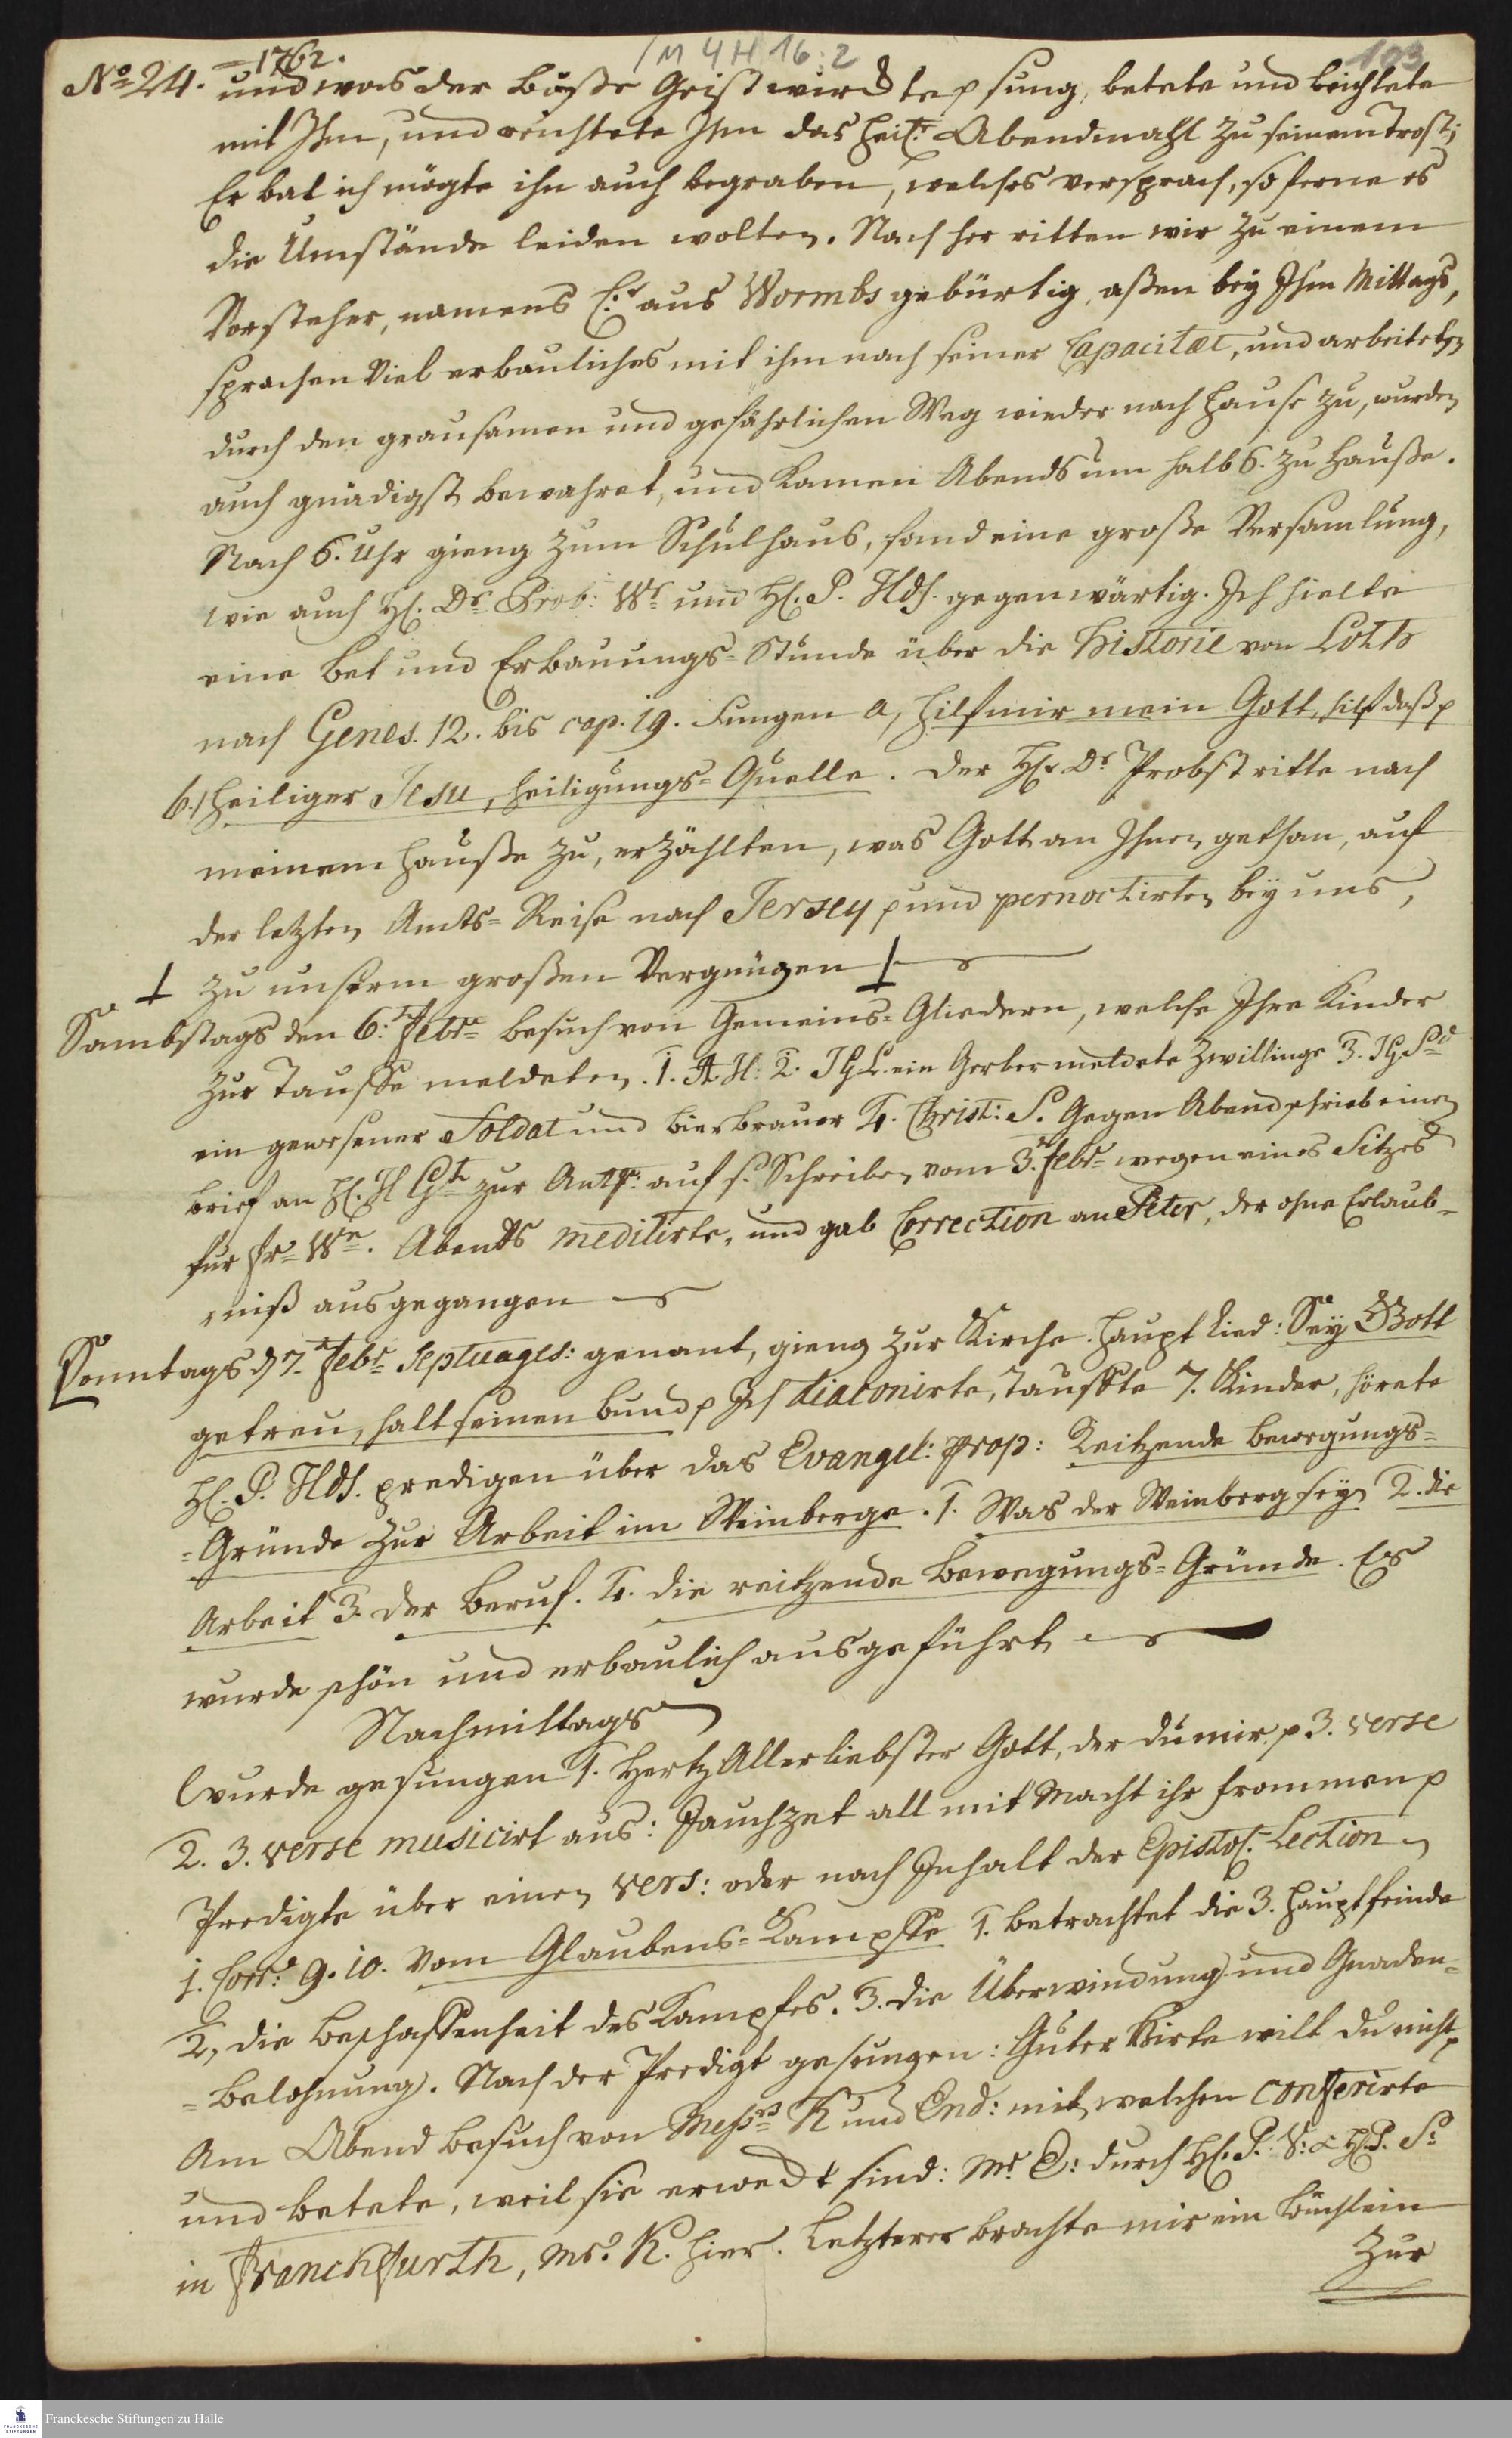 /M 4 H 16 : 2
103
No 24. = 1762.
und was der böße Geist wird tc p sung, betete und beichtete
mit Ihm, und reichtete Ihm das heil: Abendmahl zu seinem Trost;
Er bat ich mögte ihn auch begraben, welches versprach, so ferne es
die Umstände leiden wolten. Nach her ritten wir zu einem
Vorsteher, namens E:r aus Wormbs gebürtig, aßen bey Ihm Mittags,
sprachen Viel erbauliches mit ihm nach seiner Capacitæt, und arbeiteten
durch den grausamen und gefährlichen Weg wieder nach Hause zu, wurden
auch gnädigst bewahret, und kamen Abends um halb 6. zu Hauße.
Nach 6. Uhr gieng zum Schulhaus, fand eine große Versamlung,
wie auch H. Dr Prob: Wr und H. P. Hds. gegenwärtig. Ich hielte
eine Bet und Erbauungs-Stunde über die Historie von Loth
nach Genes. 12. bis cap. 19. sungen a, Hilf mir mein Gott, hilf daß p
b.) Heiliger Jesu, Heiligungs-Quelle. Der H. Dr Probst ritte nach
meinem Hauße zu, erzählten, was Gott an Ihnen gethan, auf
der letzten Amts-Reise nach Jersey p und pernoctirten bey uns,
zu unserm großen Vergnügen
Sambstags den 6:t Febr Besuch von Gemeins-Gliedern, welche Ihre Kinder
zur Tauffe meldeten. 1. A. H: 2. J G L. ein Gerber meldete Zwillinge 3. J G. Sd
ein gewesener Soldat und Bierbrauer 4. Christ: S. Gegen Abend schrieb einen
Brief an H. H Gt zur Antw: auf s. Schreiben vom 3.t Febr wegen eines Sitzes
für Fr Wn. Abents meditirte, und gab Correction an Peter, der ohne Erlaub-
niß ausgegangen
Sonntags d 7.t Febr Septuages: genant, gieng zur Kirche. Haupt Lied: Sey Gott
getreu, halt seinen Bund p Ich diaconirte, Tauffte 7. Kinder, hörete
H. P. Hds. predigen über das Evangel: prop: Reitzende Bewegungs-
-Gründe zur Arbeit im Weinberge. 1. Was der Weinberg sey, 2. die
Arbeit 3. der Beruf. 4. die reitzende Bewegungs-Gründe. Es
wurde schön und erbaulich ausgeführt
Nachmittags
Wurde gesungen 1. Hertz Allerliebster Gott, der du mir p 3. verse
2. 3. verse musicirt aus: Jauchzet all mit Macht ihr frommen p
Predigte über einen vers: oder nach Inhalt der Epistol. Lection
1. Corr: 9. 10. Vom Glaubens-Kampffe 1. betrachtet die 3. Hauptfeinde
2, die Beschaffenheit des Kampfes. 3. die Überwindung und Gnaden-
-Belohnung. Nach der Predigt gesungen: Guter Hirte wilt du nicht p
Am Abend Besuch von Messrs K und End: mit welchen conferirte
und betete, weil sie erweckt sind: Mr. E: durch H. P. V: & H. P. S:
in Franckfurth, Mr. K. hier. Letzterer brachte mir ein Büchlein
Zur
Franckesche Stiftungen zu Halle